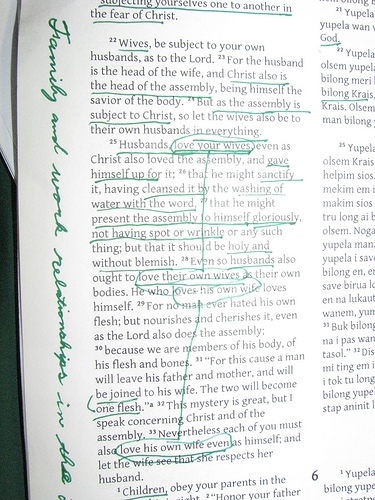 subjecting yourselves one to another in
the fear of Christ.
22 Wives, be subject to your own
husbands, as to the Lord. 23 For the husband
is the head of the wife, and Christ also is
the head of the assembly, being himself the
savior of the body. 24 But as the assembly is
subject to Christ, so let the wives also be to
their own husbands in everything.
25 Husbands, love your wives, even as
Christ also loved the assembly, and gave
himself up for it; 26 that he might sanctify
it, having cleansed it by the washing of
water with the word, 27 that he might
present the assembly to himself gloriously,
not having spot or wrinkle or any such
thing; but that it should be holy and
without blemish. 28 Even so husbands also
ought to love their own wives as their own
bodies. He who loves his own wife loves
himself. 29 For no man ever hated his own
flesh; but nourishes and cherishes it, even
as the Lord also does the assembly;
30 because we are members of his body, of
his flesh and bones. 31 "For this cause a man
will leave his father and mother, and will
be joined to his wife. The two will become
one flesh."a 32 This mystery is great, but I
speak concerning Christ and of the
assembly. 33 Nevertheless each of you must
also love his own wife even as himself; and
let the wife see that she respects her
husband.
1 Children, obey your parents in the
right. 2 "Honor your father
Family and work relationships in the
21 Yupela
yupela wan
God.
22 Yupela
olsem yupela
bilong meri
bilong Krais,
Krais. Olsem
man bilong
25 Yupela
olsem Krais
helpim sios
mekim em i
makim sios
tru long ai b
olsem. Noga
yupela man,
yupela i save
bilong en, er
save birua lo
en na lukaut
wanem, yum
31 Buk bilong
na i pas wan
tasol." 32 Dis
mi ting em i
i tok tu long
bilong yupel
stap aninit l
6
1 Yupela
bilong yupe